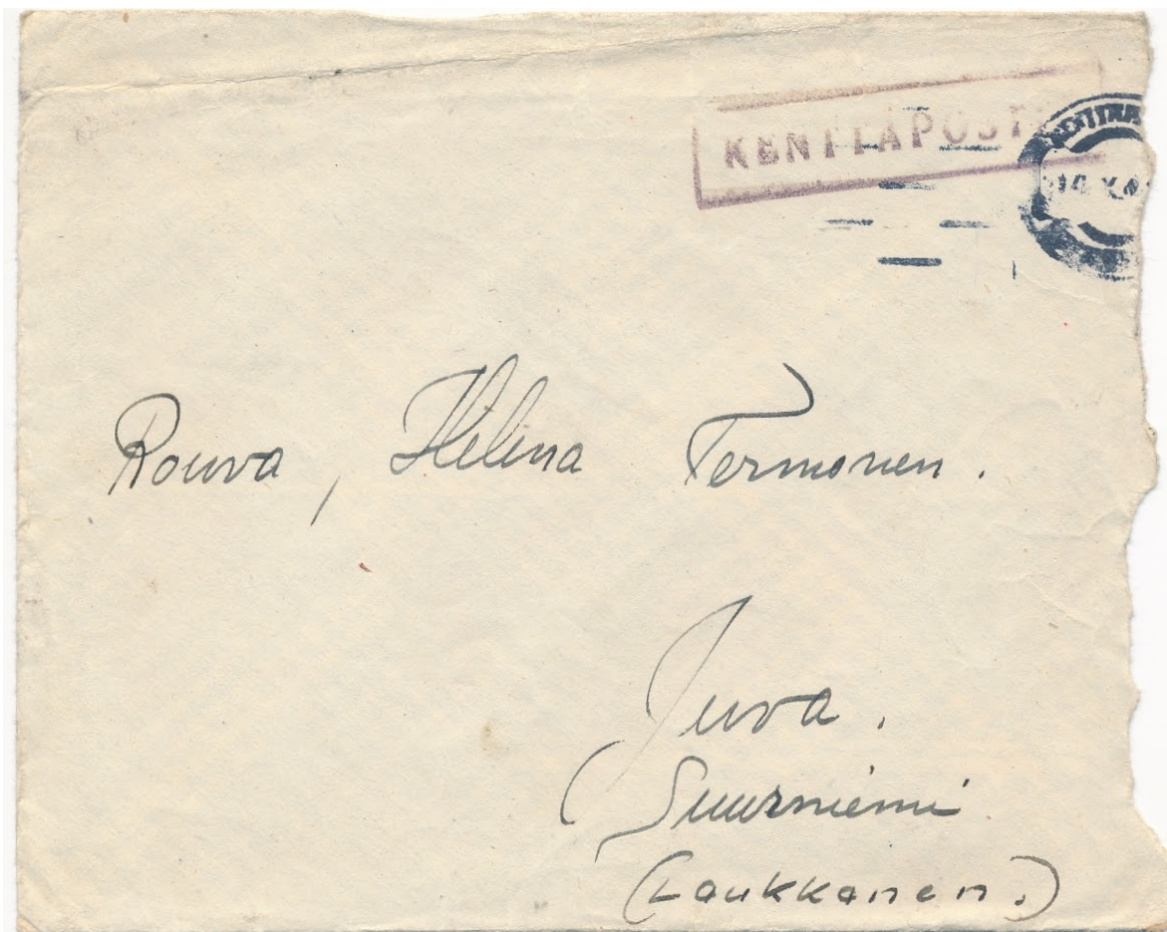 KENTTÄPOST
14 X 4
Rouva, Helena Termonen.
Juva.
Suurniemi
(Laukkanen.)